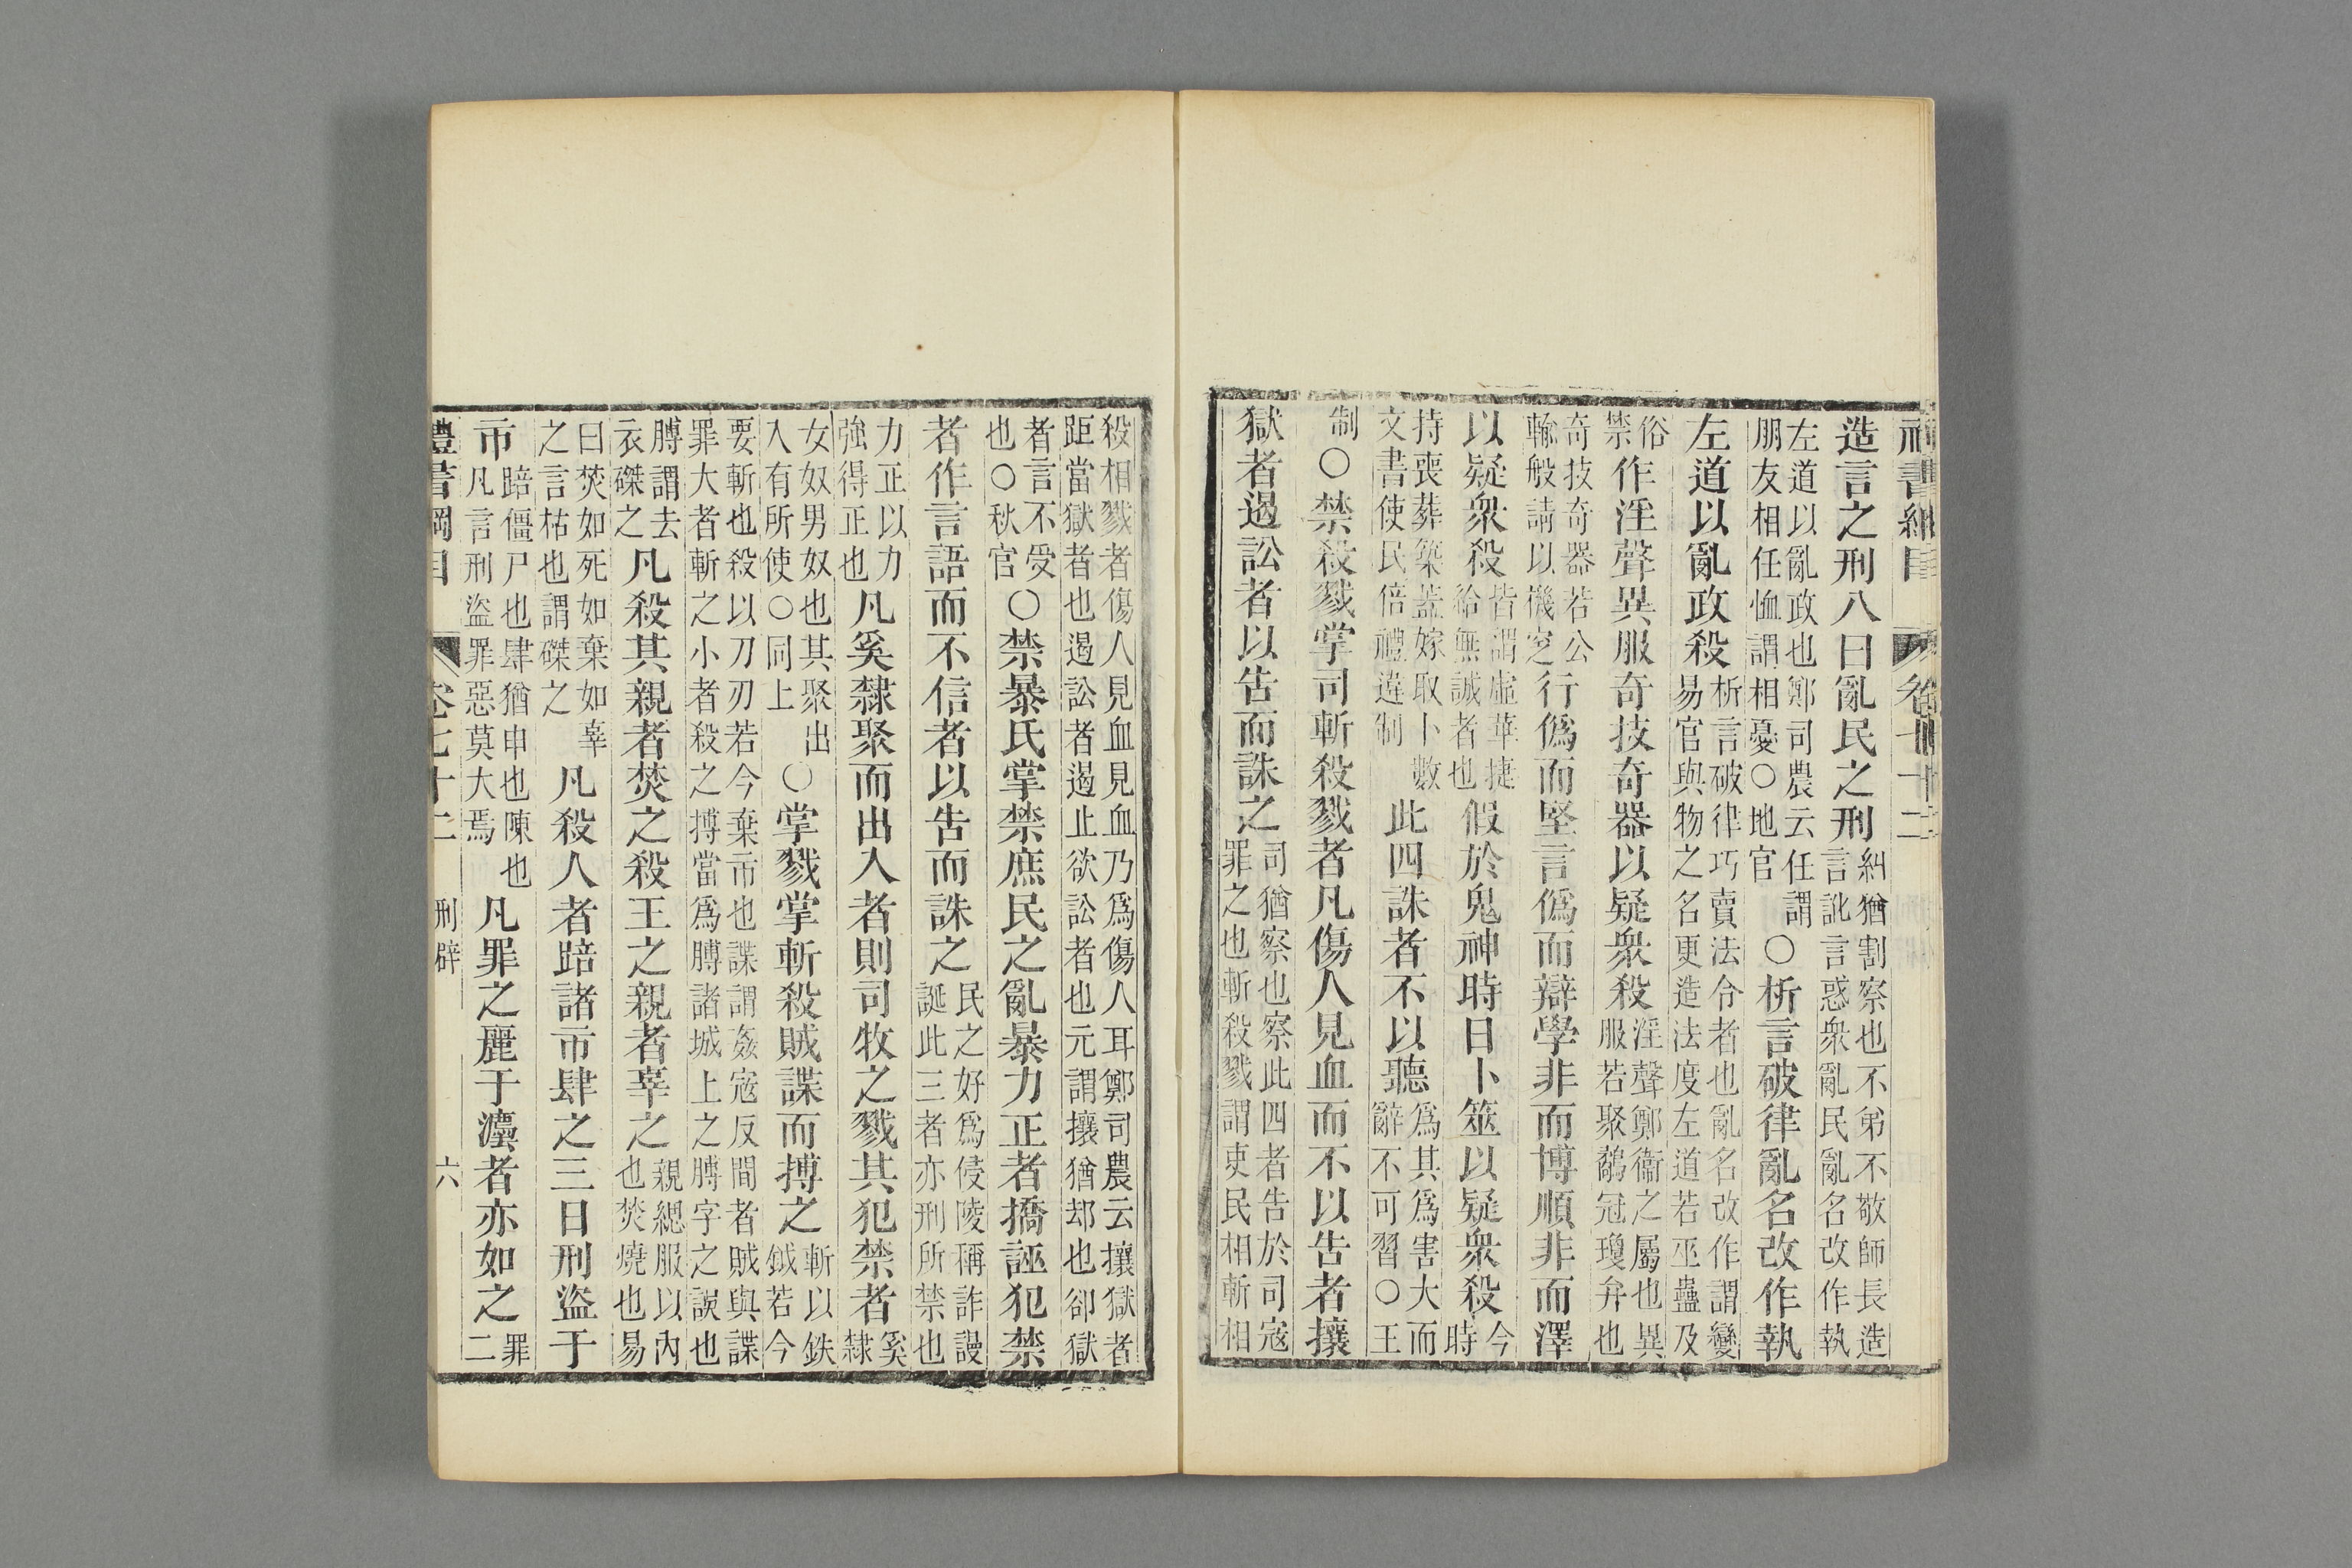 禮書綱目 卷七十二
造言之刑八曰亂民之刑糾猶割察也不弟不敬師長造言訛言惑衆亂民亂名改作執
左道以亂政也鄭司農云任謂朋友相任恤謂相憂○地官○析言破律亂名改作執
左道以亂政殺析言破律巧賣法令者也亂名改作謂變易官與物之名更造法度左道若巫蠱及
俗禁作淫聲異服奇技奇器以疑衆殺淫聲鄭衞之屬也異服若聚鷸冠瓊弁也
奇技奇器若公輸般請以機窆行僞而堅言僞而辯學非而博順非而澤
以疑衆殺皆謂虛華捷給無誠者也假於鬼神時日卜筮以疑衆殺今時
持喪葬築蓋嫁取卜數文書使民倍禮違制此四誅者不以聽爲其爲害大而辭不可習○王
制○禁殺戮掌司斬殺戮者凡傷人見血而不以告者攘
獄者遏訟者以告而誅之司猶察也察此四者告於司寇罪之也斬殺戮謂吏民相斬相
殺相戮者傷人見血見血乃爲傷人耳鄭司農云攘獄者距當獄者也遏訟者遏止欲訟者也元謂攘猶却也卻獄
者言不受也○秋官○禁暴氏掌禁庶民之亂暴力正者撟誣犯禁
者作言語而不信者以告而誅之民之好爲侵陵稱詐謾誕此三者亦刑所禁也
力正以力強得正也凡奚隸聚而出入者則司牧之戮其犯禁者奚隸
女奴男奴也其聚出入有所使○同上○掌戮掌斬殺賊諜而搏之斬以鈇鉞若今
要斬也殺以刀刃若今棄市也諜謂姦寇反間者賊與諜罪大者斬之小者殺之搏當爲膊諸城上之膊字之誤也
膊謂去衣磔之凡殺其親者焚之殺王之親者辜之親緦服以內也焚燒也易
曰焚如死如棄如辜之言枯也謂磔之凡殺人者踣諸市肆之三日刑盜于
市踣僵尸也肆猶申也陳也凡言刑盜罪惡莫大焉凡罪之麗于灋者亦如之罪二
禮書綱目 卷七十二 刑辟 六